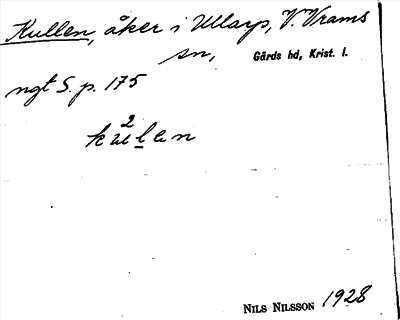 Kullen, åker i Ullarp, V. Vrams
sn, Gärds hd, Krist. l.
ngt S. p. 175
2
kulen
NILS NILSSON 1928